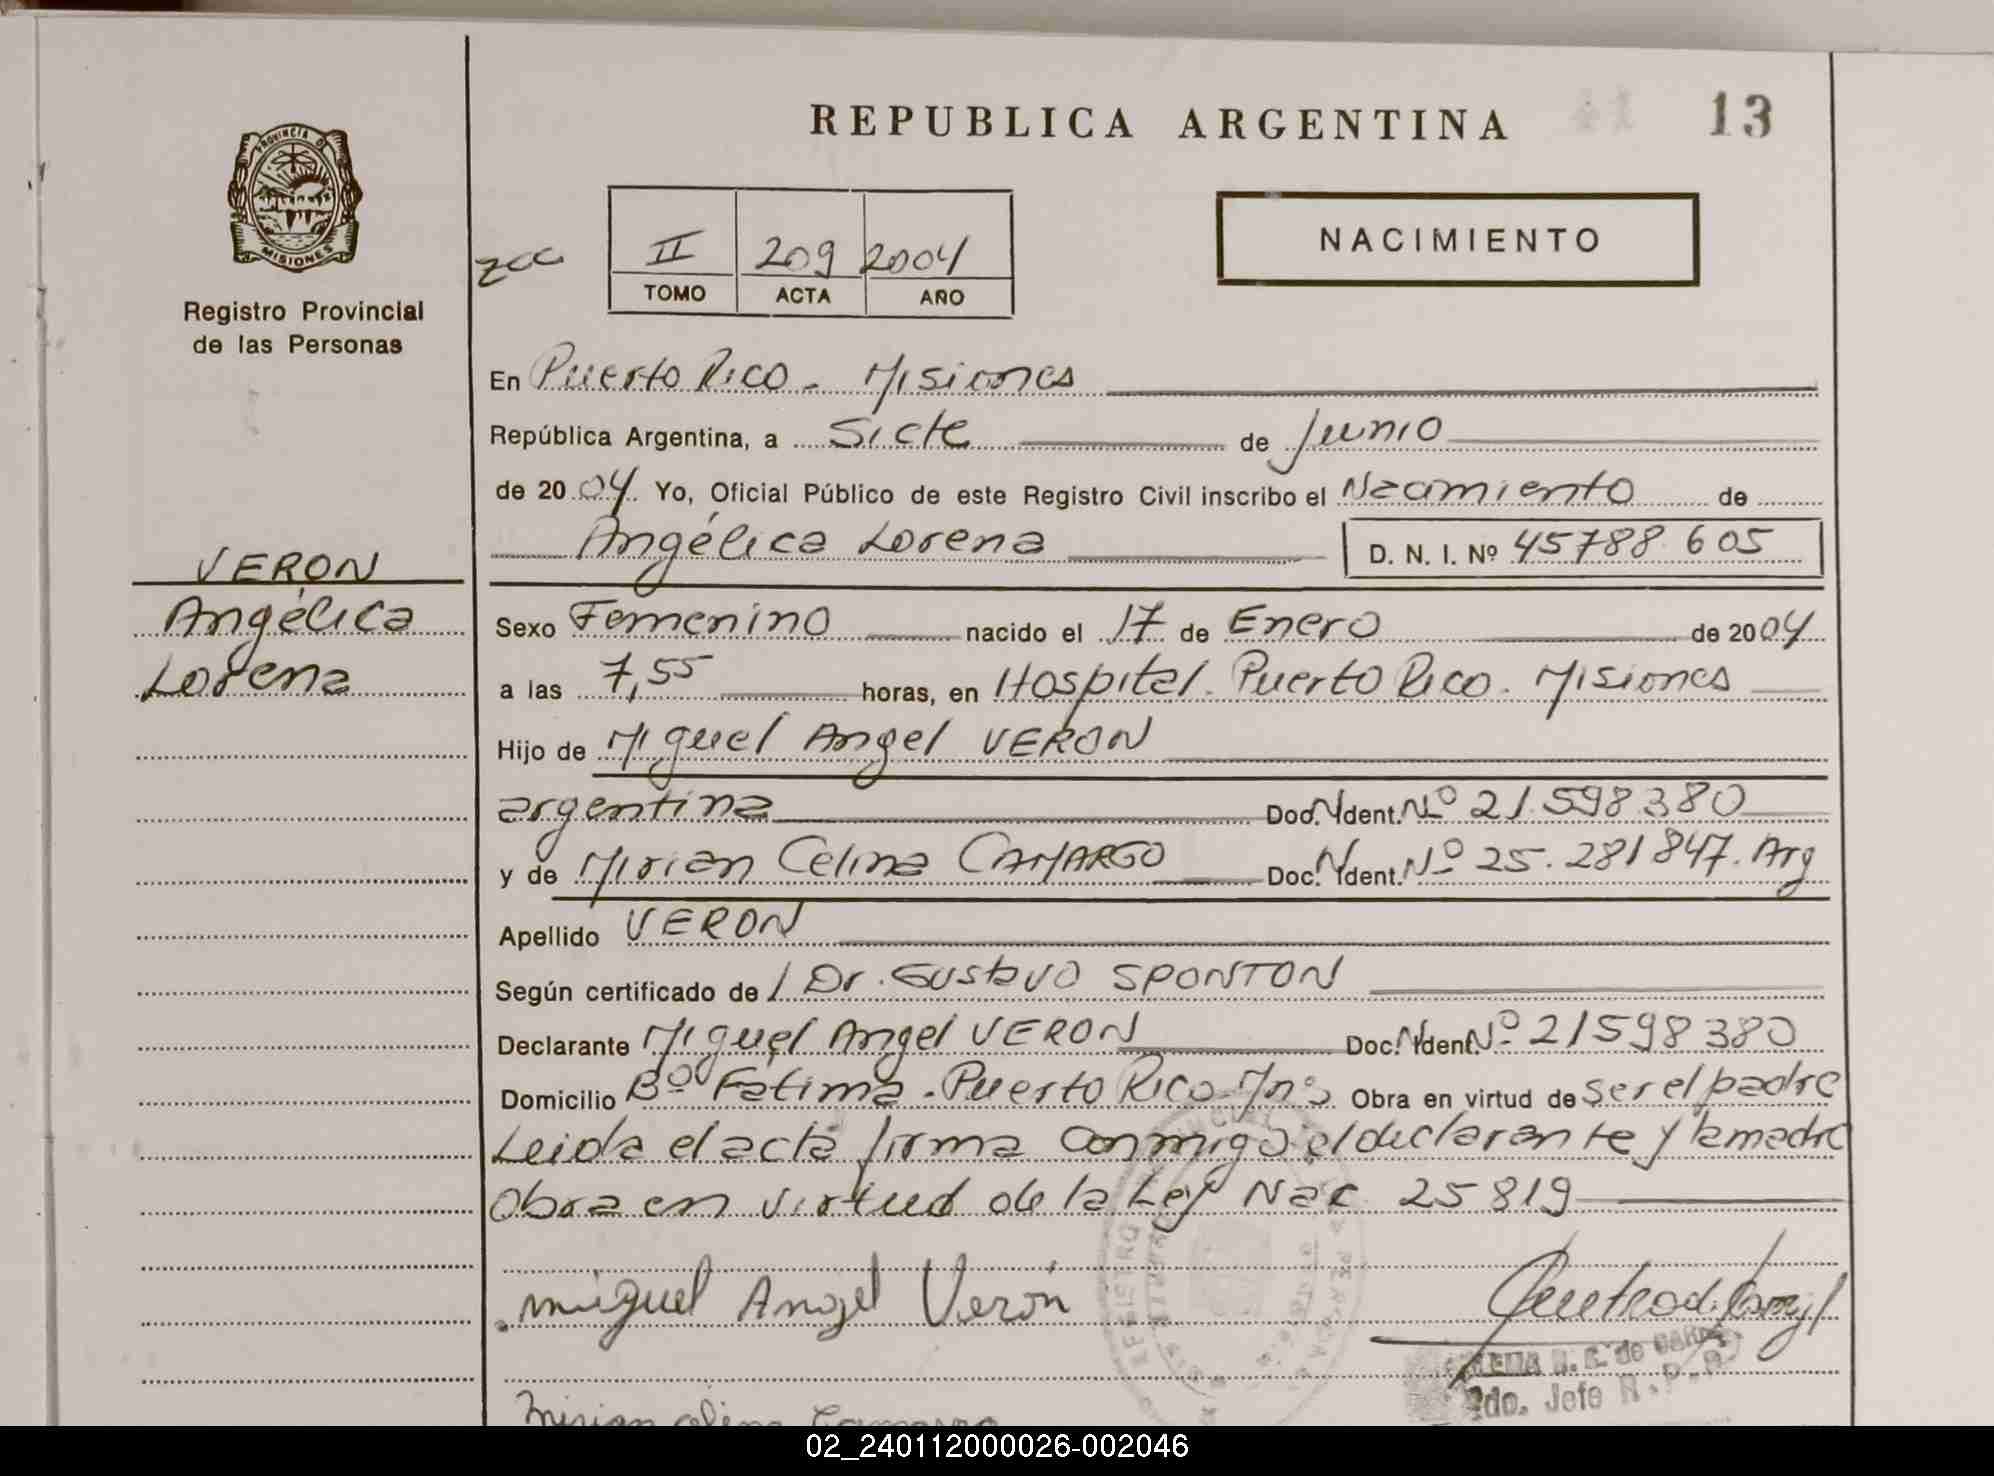 REPUBLICA ARGENTINA
13
PROVINCIA DE
MISIONES
Registro Provincial
de las Personas
zcc
II 209 2004
TOMO ACTA AÑO
NACIMIENTO
En Puerto Rico - Misiones
República Argentina, a Siete de Junio
de 2004 Yo, Oficial Público de este Registro Civil inscribo el Nacimiento de
Angélica Lorena D. N. I. Nº 45788.605
VERON
Angélica
Lorena
Sexo Femenino nacido el 17 de Enero de 2004
a las 7,55 horas, en Hospital. Puerto Rico. Misiones
Hijo de Miguel Angel VERON
argentina Doc. N Ident. Nº 21.598.380
y de Mirian Celina CAMARGO Doc. N Ident. Nº 25.281847. Arg
Apellido VERON
Según certificado de / Dr. Gustavo SPONTON
Declarante Miguel Angel VERON Doc. N Ident. Nº 21598380
Domicilio Bº Fátima - Puerto Rico Mnes Obra en virtud de ser el padre
Leida el acta firma conmigo el declarante y la madre
Obra en virtud de la Ley Nac 25819
miguel Angel Verón
de
2do. Jefe R.P.P
Mirian Celina Camargo
02_240112000026-002046